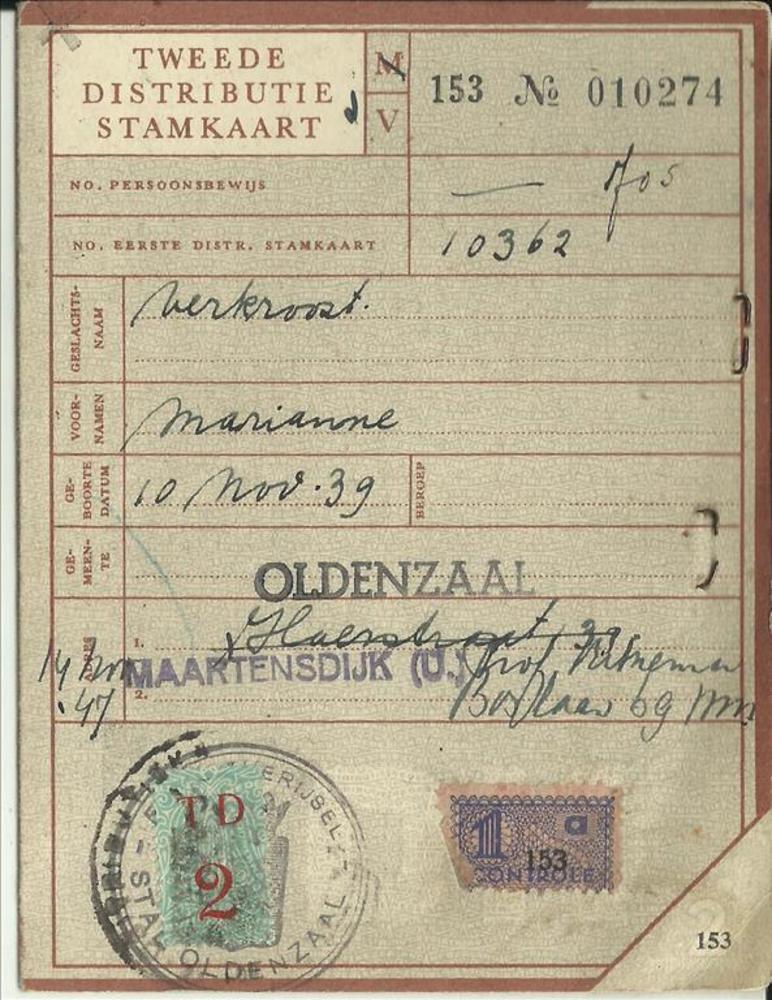 TWEEDE
DISTRIBUTIE
STAMKAART
M
V
153 No 010274
NO. PERSOONSBEWIJS
— 705
NO. EERSTE DISTR. STAMKAART
10362
GESLACHTS-
NAAM
Verkroost.
VOOR-
NAMEN
Marianne
GE-
BOORTE
DATUM
10 Nov. 39
BEROEP
GE-
MEEN-
TE
OLDENZAAL
1.
Haerstraat, 39
14 Nov
.47
MAARTENSDIJK (U.)
Prof.
2.
69
TD
2
OVERIJSEL
STAD OLDENZAAL
1 a
153
CONTROLE
153